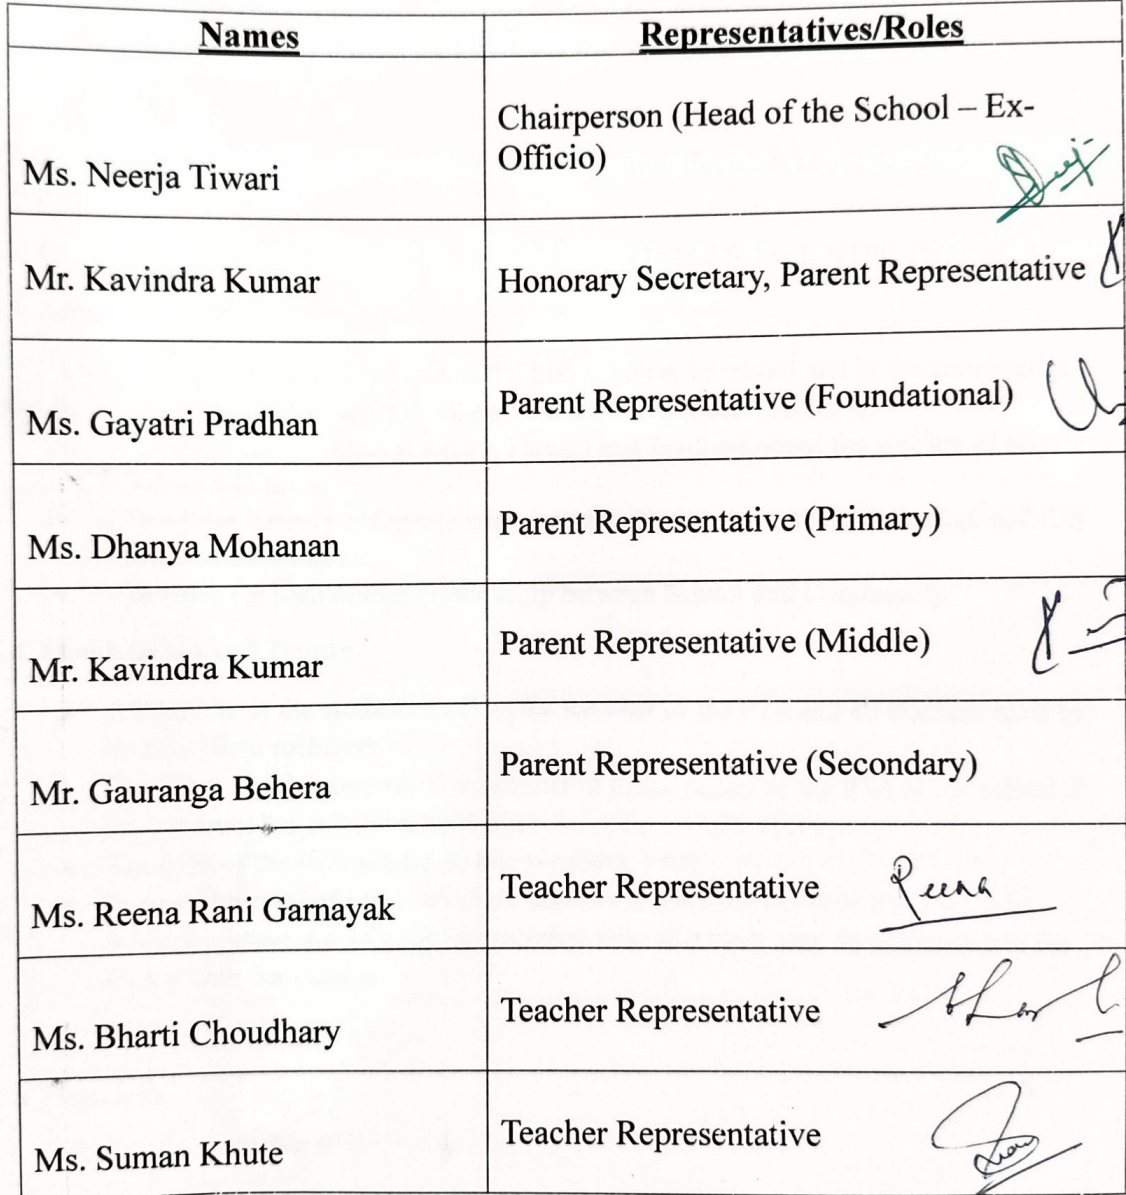 Names Representatives/Roles
Chairperson (Head of the School – Ex-
Officio)
Ms. Neerja Tiwari
Mr. Kavindra Kumar Honorary Secretary, Parent Representative
Ms. Gayatri Pradhan Parent Representative (Foundational)
Ms. Dhanya Mohanan Parent Representative (Primary)
Mr. Kavindra Kumar Parent Representative (Middle)
Mr. Gauranga Behera Parent Representative (Secondary)
Ms. Reena Rani Garnayak Teacher Representative Reena
Ms. Bharti Choudhary Teacher Representative
Ms. Suman Khute Teacher Representative